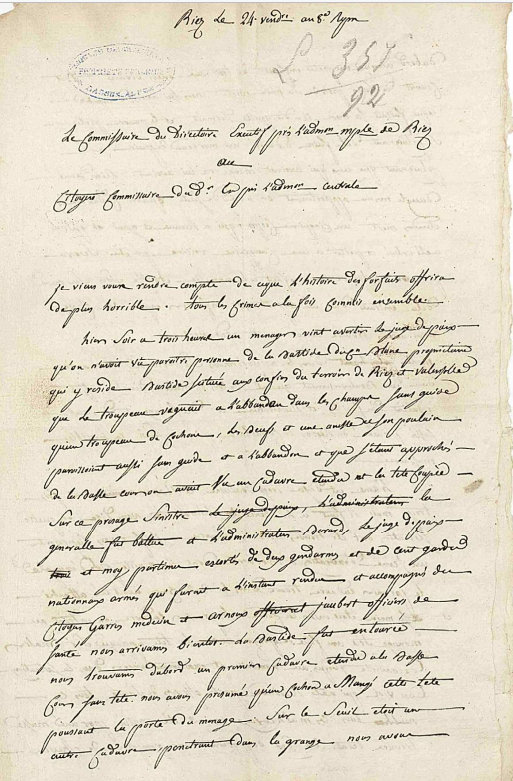 Riez le 24 vendre an 8e Rpn
L 357
92
Le Commissaire du Directoire Executif près L'admon mple de Riez
au
Citoyen Commissaire du dr. En près L'admon centrale
je viens vous rendre compte de ceque L'histoire des forfaits offrira
de plus horrible. tous les Crimes a la fois Commis ensemble.
hier Soir a trois heures un menager vint avertir le juge depaix
qu'on n'avoit vu paraitre personne de la Bastide du Cn Blanc propriétaire
qui y reside Bastide située aux confins du terroir de Riez et valensolle
que le troupeau vaguait a L'abbandon dans les Champs Sans guide
qu'un troupeau de Cochons, des Beufs et une anesse et son poulain
paroissoient aussi Sans guide et a L'abbandon et que S'étant approchés
de la Basse cour on avait Vu un Cadavre etendu et la tete Coupée
Sur ce presage Sinistre Le juge depaix, L'administrateur la
generalle fut battue et L'administrateur Berard, Le juge depaix
et moy partimes escortés de deux gendarmes et de Cent gardes
nationnaux armés qui furent a L'instant rendus et accompagnés des
Citoyens Garros medecin et arnoux jaubert officiers de
santé nous arrivames bientot. La Bastide fut entourée
nous trouvames dabord un premier Cadavre etendu a la Basse
Cour Sans tete. nous avons presumé qu'un Cochon a Mangé cette tete
poussant la porte du menage Sur le Seuil etoit un
autre Cadavre, penetrant dans la grange nous avons